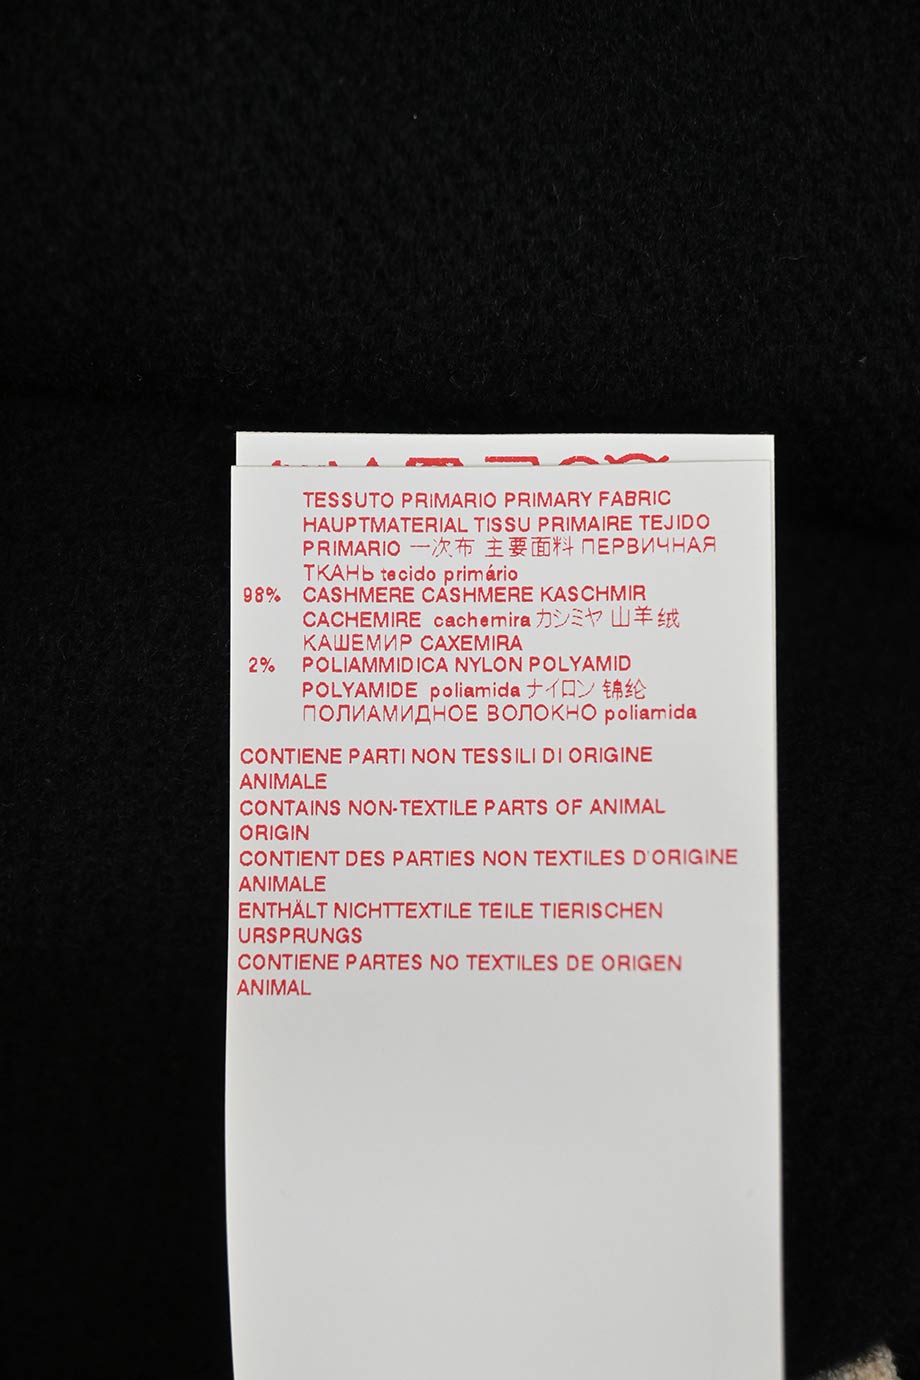 TESSUTO PRIMARIO PRIMARY FABRIC
HAUPTMATERIAL TISSU PRIMAIRE TEJIDO
PRIMARIO 一次布 主要面料 ПЕРВИЧНАЯ
ТКАНЬ tecido primário
98% CASHMERE CASHMERE KASCHMIR
CACHEMIRE cachemira カシミヤ 山羊绒
КАШЕМИР CAXEMIRA
2% POLIAMMIDICA NYLON POLYAMID
POLYAMIDE poliamida ナイロン 锦纶
ПОЛИАМИДНОЕ ВОЛОКНО poliamida
CONTIENE PARTI NON TESSILI DI ORIGINE
ANIMALE
CONTAINS NON-TEXTILE PARTS OF ANIMAL
ORIGIN
CONTIENT DES PARTIES NON TEXTILES D'ORIGINE
ANIMALE
ENTHÄLT NICHTTEXTILE TEILE TIERISCHEN
URSPRUNGS
CONTIENE PARTES NO TEXTILES DE ORIGEN
ANIMAL